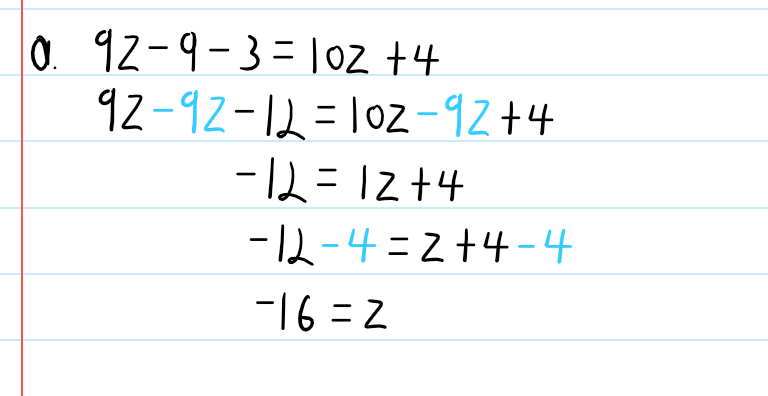 a. 9z - 9 - 3 = 10z + 4
9z - 9z - 12 = 10z - 9z + 4
-12 = 1z + 4
-12 - 4 = z + 4 - 4
-16 = z